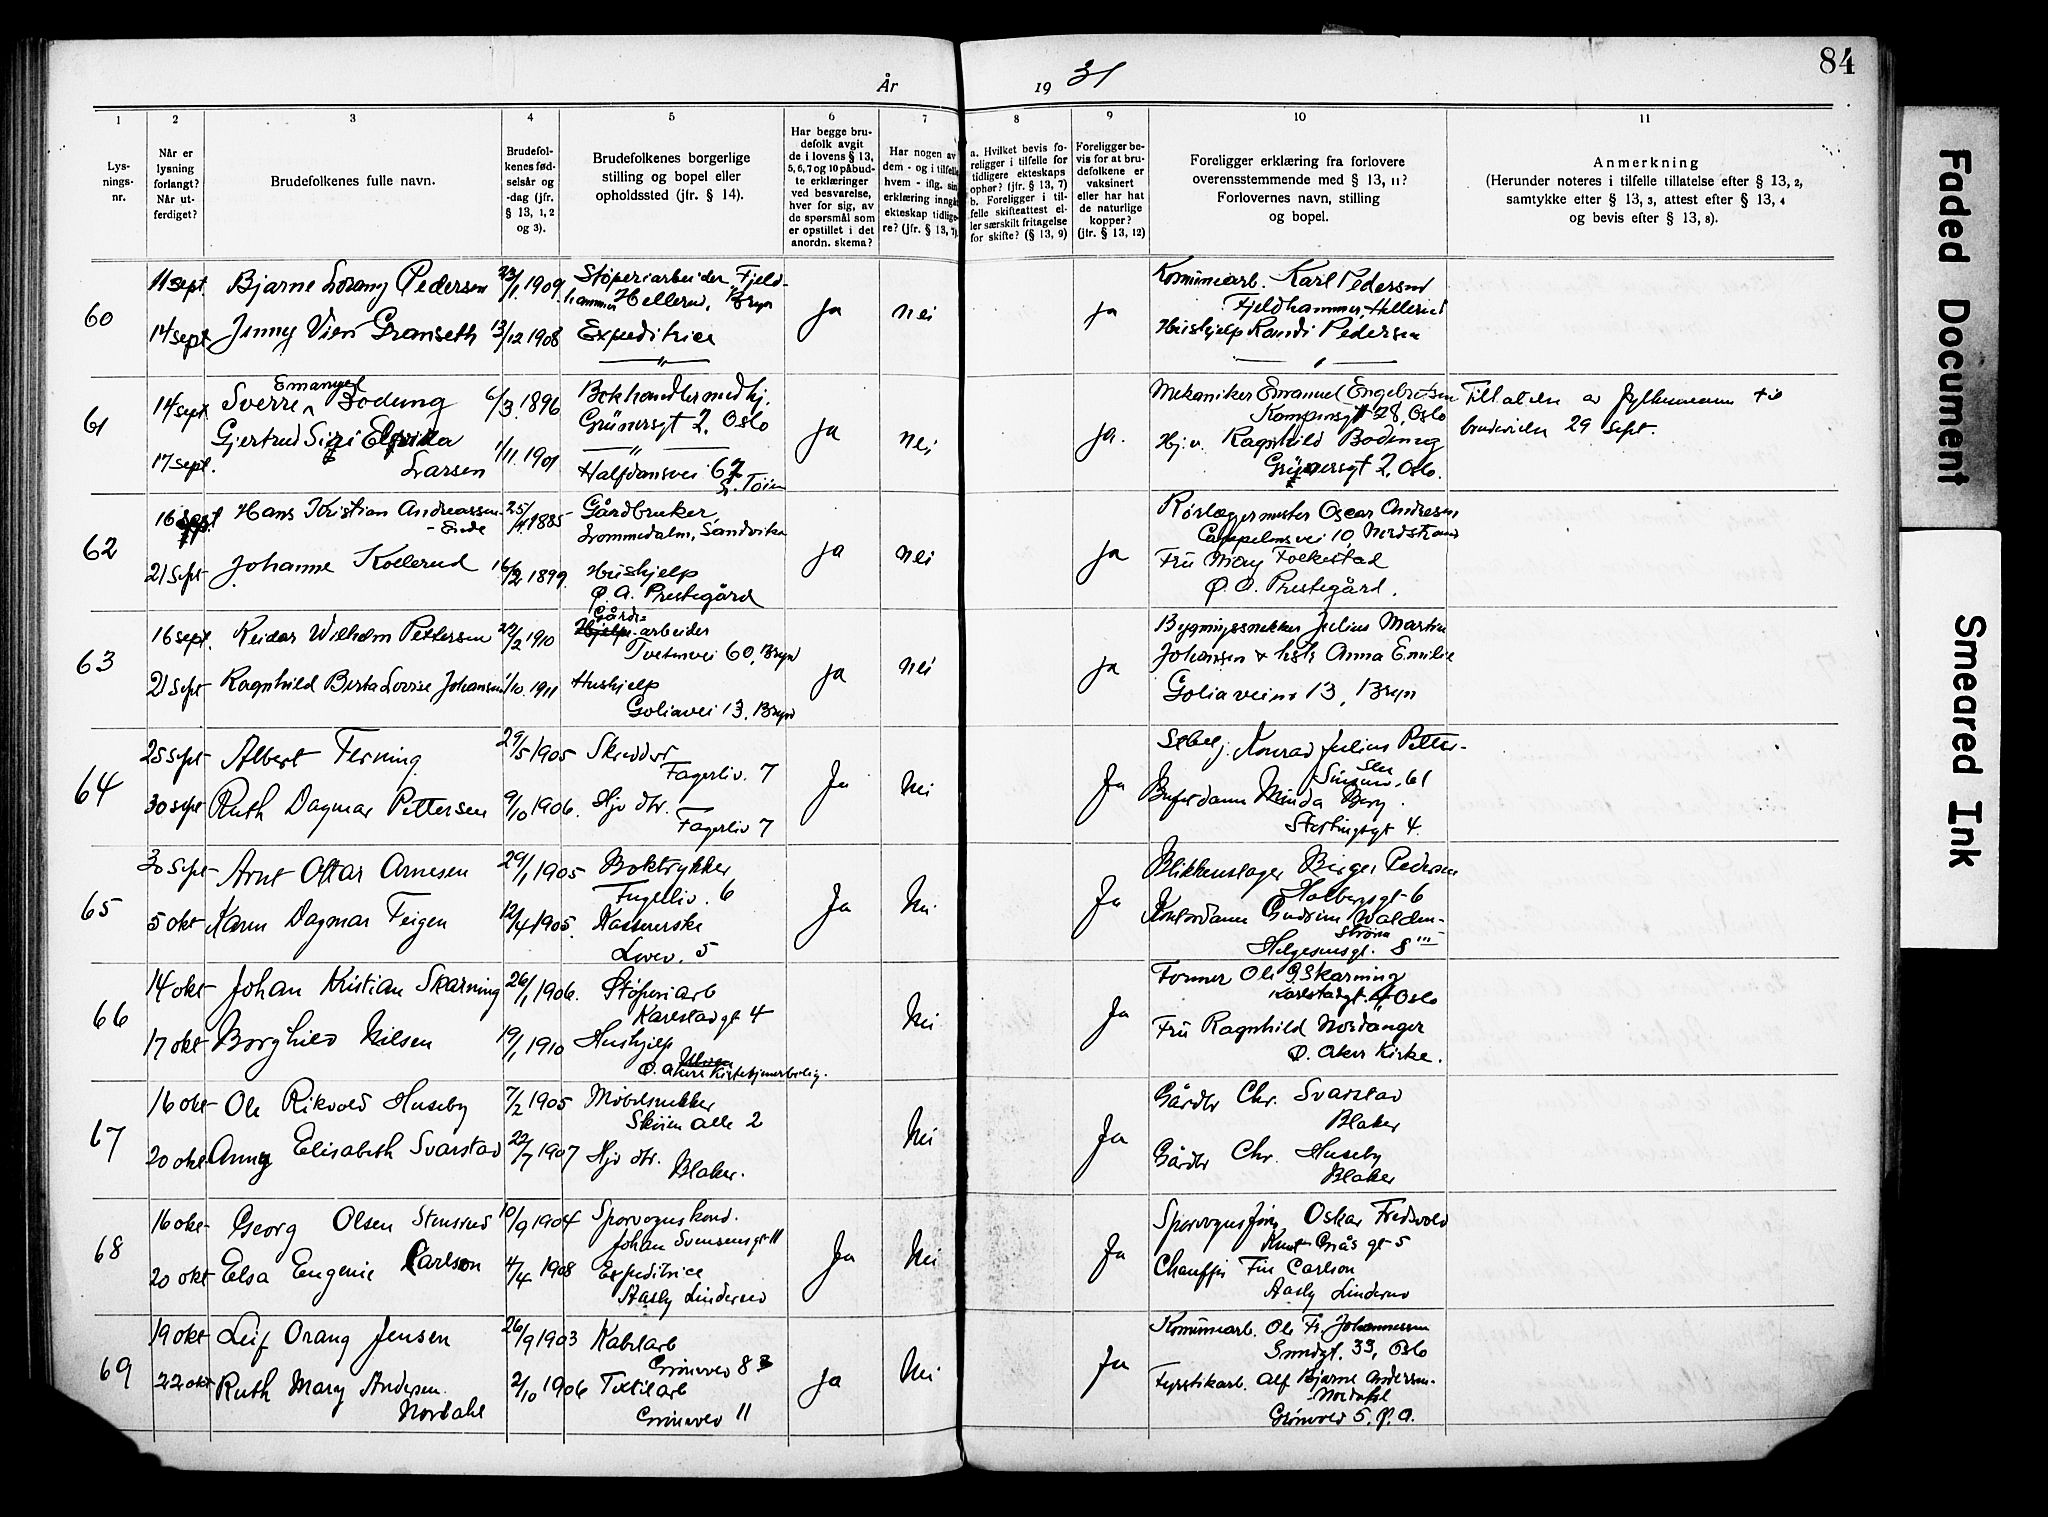 84
År 1931
1 2 3 4 5 6 7 8 9 10 11
Lysningsnr.
Når er lysning forlangt? Når utferdiget?
Brudefolkenes fulle navn.
Brudefolkenes fødselsår og -dag (jfr. § 13, 1, 2 og 3).
Brudefolkenes borgerlige stilling og bopel eller opholdssted (jfr. § 14).
Har begge brudefolk avgit de i lovens § 13, 5, 6, 7 og 10 påbudte erklæringer ved besvarelse, hver for sig, av de spørsmål som er opstillet i det anordn. skema?
Har nogen av dem - og i tilfelle hvem - iflg. sin erklæring inngått ekteskap tidligere? (jfr. § 13, 7).
a. Hvilket bevis foreligger i tilfelle for tidligere ekteskaps ophør? (jfr. § 13, 7) b. Foreligger i tilfelle skifteattest eller særskilt fritagelse for skifte? (§ 13, 9)
Foreligger bevis for at brudefolkene er vaksinert eller har hat de naturlige kopper? (jfr. § 13, 12)
Foreligger erklæring fra forlovere overensstemmende med § 13, 11? Forlovernes navn, stilling og bopel.
Anmerkning (Herunder noteres i tilfelle tillatelse efter § 13, 2, samtykke efter § 13, 3, attest efter § 13, 4 og bevis efter § 13, 8).
60
11 sept. Bjarne Pedersen 23/1 1909 Støperiarbeider, Fjeldhammer Hellerud, Bryn ja nei ja Kommunearb. Karl Pedersen
Fjeldhammer, Hellerud
14 sept. Jenny Granseth 13/12 1908 Expeditrice
Hushjelp Randi Pedersen
— " —
61
14 sept. Sverre Emanuel Bodung 6/3 1896 Bokhandlermedhj.
Grünersgt 2, Oslo ja nei ja. Mekaniker Emanuel Engebretsen
Kampensgt 28, Oslo
Tillatelse av fylkesmann til
29 sept.
17 sept. Gjertrud
Larsen 1/11. 1901 — " —
Halfdansvei 62
Hj.v. Ragnhild Bodung
Grünersgt 2, Oslo.
62
16 sept. Hans Kristian Andreassen
1885 Gårdbruker,
Lommedalen, Sandvika ja nei ja Rørlæggermester Oscar Andresen
Cappelensvei 10, Nordstrand
21 sept Johanne Kollerud 16/2 1899. Hushjelp
Ø. A. Prestegård
Fru May Folkestad
Ø. A. Prestegård.
63
16 sept. Reidar Wilhelm Pettersen 22/2 1910 Gårds-arbeider
Tvetenvei 60, Bryn ja nei ja Bygningssnekker Julius Martin
Johansen & hstr. Anna Emilie
21 sept Ragnhild Berta Lovise Johansen 1/10. 1911 Hushjelp
Goliavei 13, Bryn
Goliaveien 13, Bryn
64
25 sept Albert Ferning 29/5 1905 Skredder
Fagerliv. 7 Ja Nei Ja Konrad Julius Petter-
sen
Sinsenv. 61
30 sept Ruth Dagmar Pettersen 9/10 1906. Hjv dtr.
Fagerliv 7
Bufetdame Minda Berg.
Stortingsgt 4.
65
30 sept Arnt Ottar Arnesen 29/1 1905 Boktrykker
Fugelliv. 6 Ja Nei Ja Blikkenslager Birger Pedersen
Holbergsgt 6
5 okt Karen Dagmar Feigen 12/4 1905. Kassererske
5
Kontordame Gudrun Walden-
strøm
Helgesensgt. 8 III
66
14 okt Johan Kristian Skarning 26/1 1906. Støperiarb
Karlstadgt 4 Nei Ja Former Ole G. Skarning
Karlstadgt. 4, Oslo
17 okt Borghild Nilsen 19/1 1910 Hushjelp
Ø. Aker Kirketjenerbolig.
Fru Ragnhild Nordanger
Ø. Aker Kirke.
67
16 okt Ole Rikvold Huseby 7/2 1905 Møbelsnekker
Skøien alle 2 Nei Ja Gårdbr Chr. Svarstad
Blaker
20 okt Anny Elisabeth Svarstad 22/7 1907 Hjv dtr.
Blaker.
Gårdbr Chr. Huseby
Blaker
68
16 okt Georg Olsen Stensrud 10/9 1904 Sporvognskond.
Johan Svensensgt 11 Ja Nei Ja Oskar Fredvold
gt 5
20 okt Elsa Eugenie Carlson 4/4 1908 Expeditrice
Aasly Linderud
Chauffør Carlson
Aasly Linderud
69
19 okt Leif Orang Jensen 26/9 1903 Kabelarb
83 ja Nei Ja Kommunearb. Ole Fr. Johannessen
33, Oslo
22 okt Ruth Mary Andersen
Nordahl 2/10 1906 Textilarb
11
Fyrstikarb. Alf Bjarne Andersen-
Nordahl
Grönvold 5, Ø. A.
Faded Document
Smeared Ink